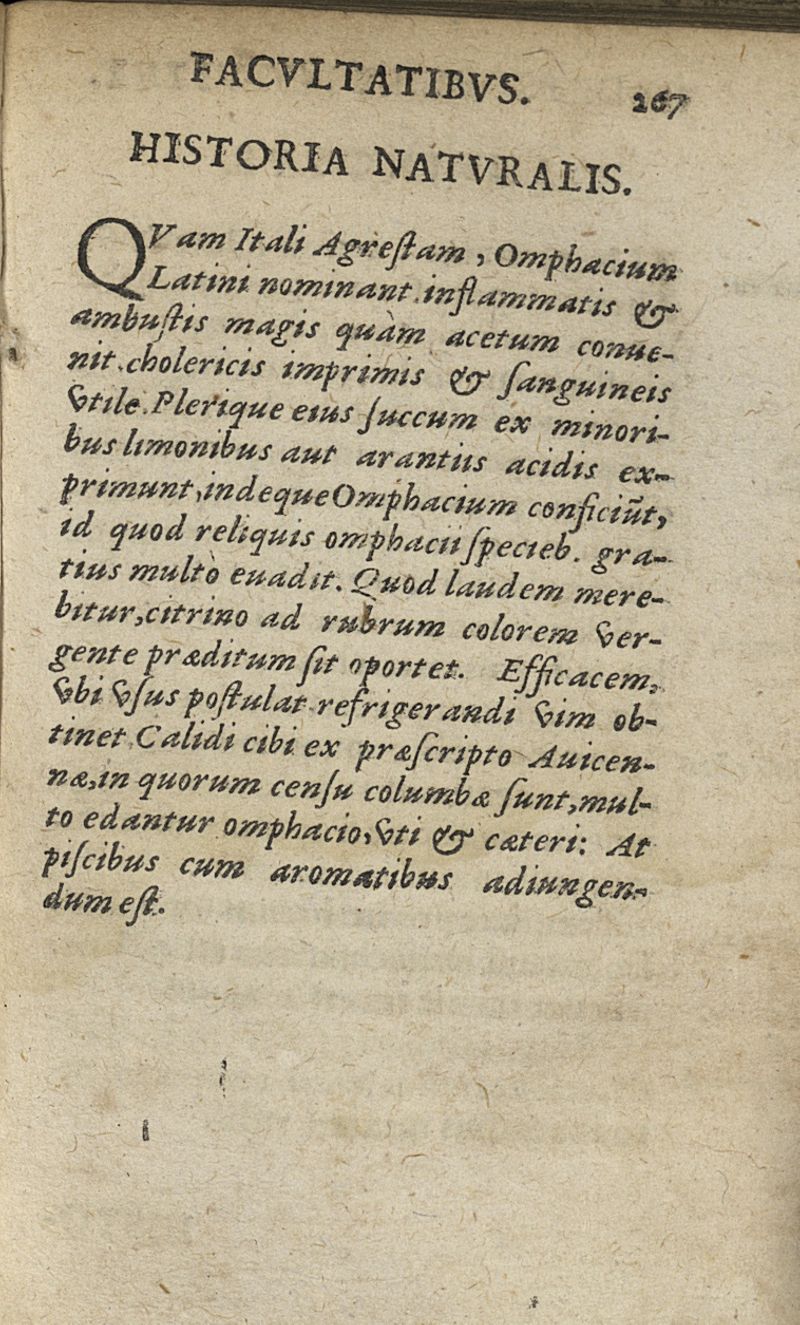 FACVLTATIBVS. 267
HISTORIA NATVRALIS.
QVam Itali Agreſtam, Omphacium
Latini nominant, inflammatis &
ambuſtis magis quàm acetum conue-
nit. cholericis imprimis & ſanguineis
vtile. Plerique eius ſuccum ex minori-
bus limonibus aut arantiis acidis ex-
primunt, indeque Omphacium conficiũt,
id quod reliquis omphacii ſpecieb. gra-
tius multò euadit. Quod laudem mere-
bitur, citrino ad rubrum colorem ver-
gente præditum ſit oportet. Efficacem,
vbi vſus poſtulat refrigerandi vim ob-
tinet. Calidi cibi ex præſcripto Auicen-
næ, in quorum cenſu columbæ ſunt, mul-
to edantur omphacio, vti & cæteri: At
piſcibus cum aromatibus adiungen-
dum eſt.